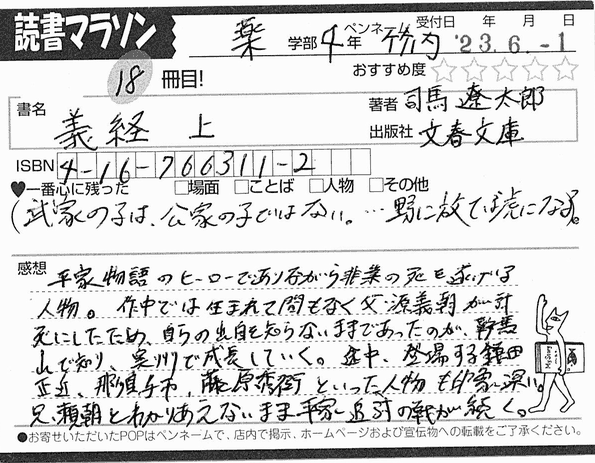 読書マラソン
薬 学部 4年 ペンネーム 竹内 受付日 年 月 日 '23.6.-1
18 冊目!
おすすめ度 ☆☆☆☆☆
書名 義経 上
著者 司馬遼太郎
出版社 文春文庫
ISBN 4-16-766311-2
♥一番心に残った □場面 □ことば □人物 □その他
(武家の子は、公家の子ではない。…野に放てば虎になる)。
感想
平家物語のヒーローであり乍がら非業の死を遂げる
人物。作中では生まれて間もなく父・源義朝が討
死にしたため、自らの出自を知らないままであったのが、鞍馬
山で知り、奥州で成長していく。途中、登場する鎌田
正近、那須与市、藤原秀衡といった人物も印象深い。
兄・頼朝とわかりあえないまま平家追討の戦が続く。
●お寄せいただいたPOPはペンネームで、店内で掲示、ホームページおよび宣伝物への転載をご了承ください。